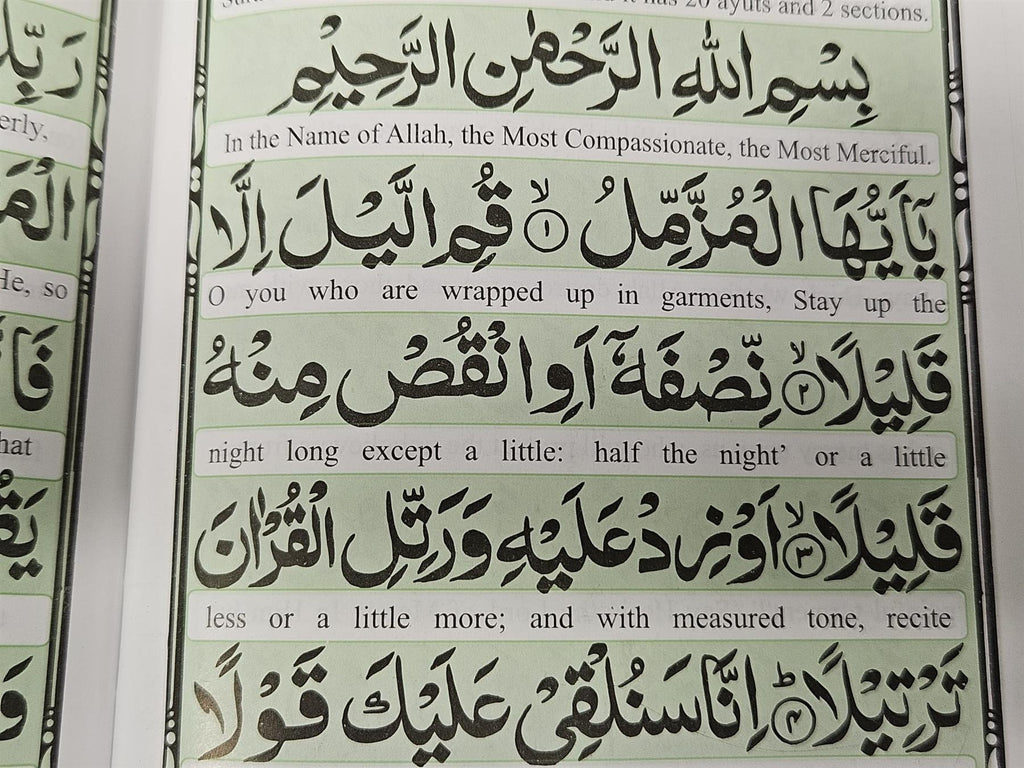 has 20 ayuts and 2 sections.
بِسْمِ اللّٰهِ الرَّحْمٰنِ الرَّحِيْمِ
In the Name of Allah, the Most Compassionate, the Most Merciful.
يٰۤاَيُّهَا الْمُزَّمِّلُ ۙ﴿۱﴾ قُمِ الَّيْلَ اِلَّا
O you who are wrapped up in garments, Stay up the
قَلِيْلًا ۙ﴿۲﴾ نِّصْفَهٗۤ اَوِ انْقُصْ مِنْهُ
night long except a little: half the night’ or a little
قَلِيْلًا ۙ﴿۳﴾ اَوْ زِدْ عَلَيْهِ وَرَتِّلِ الْقُرْاٰنَ
less or a little more; and with measured tone, recite
تَرْتِيْلًا ؕ﴿۴﴾ اِنَّا سَنُلْقِيْ عَلَيْكَ قَوْلًا
erly,
He, so
hat